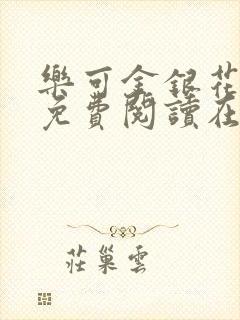 樂可金銀花
免費閱讀在
莊巢雲